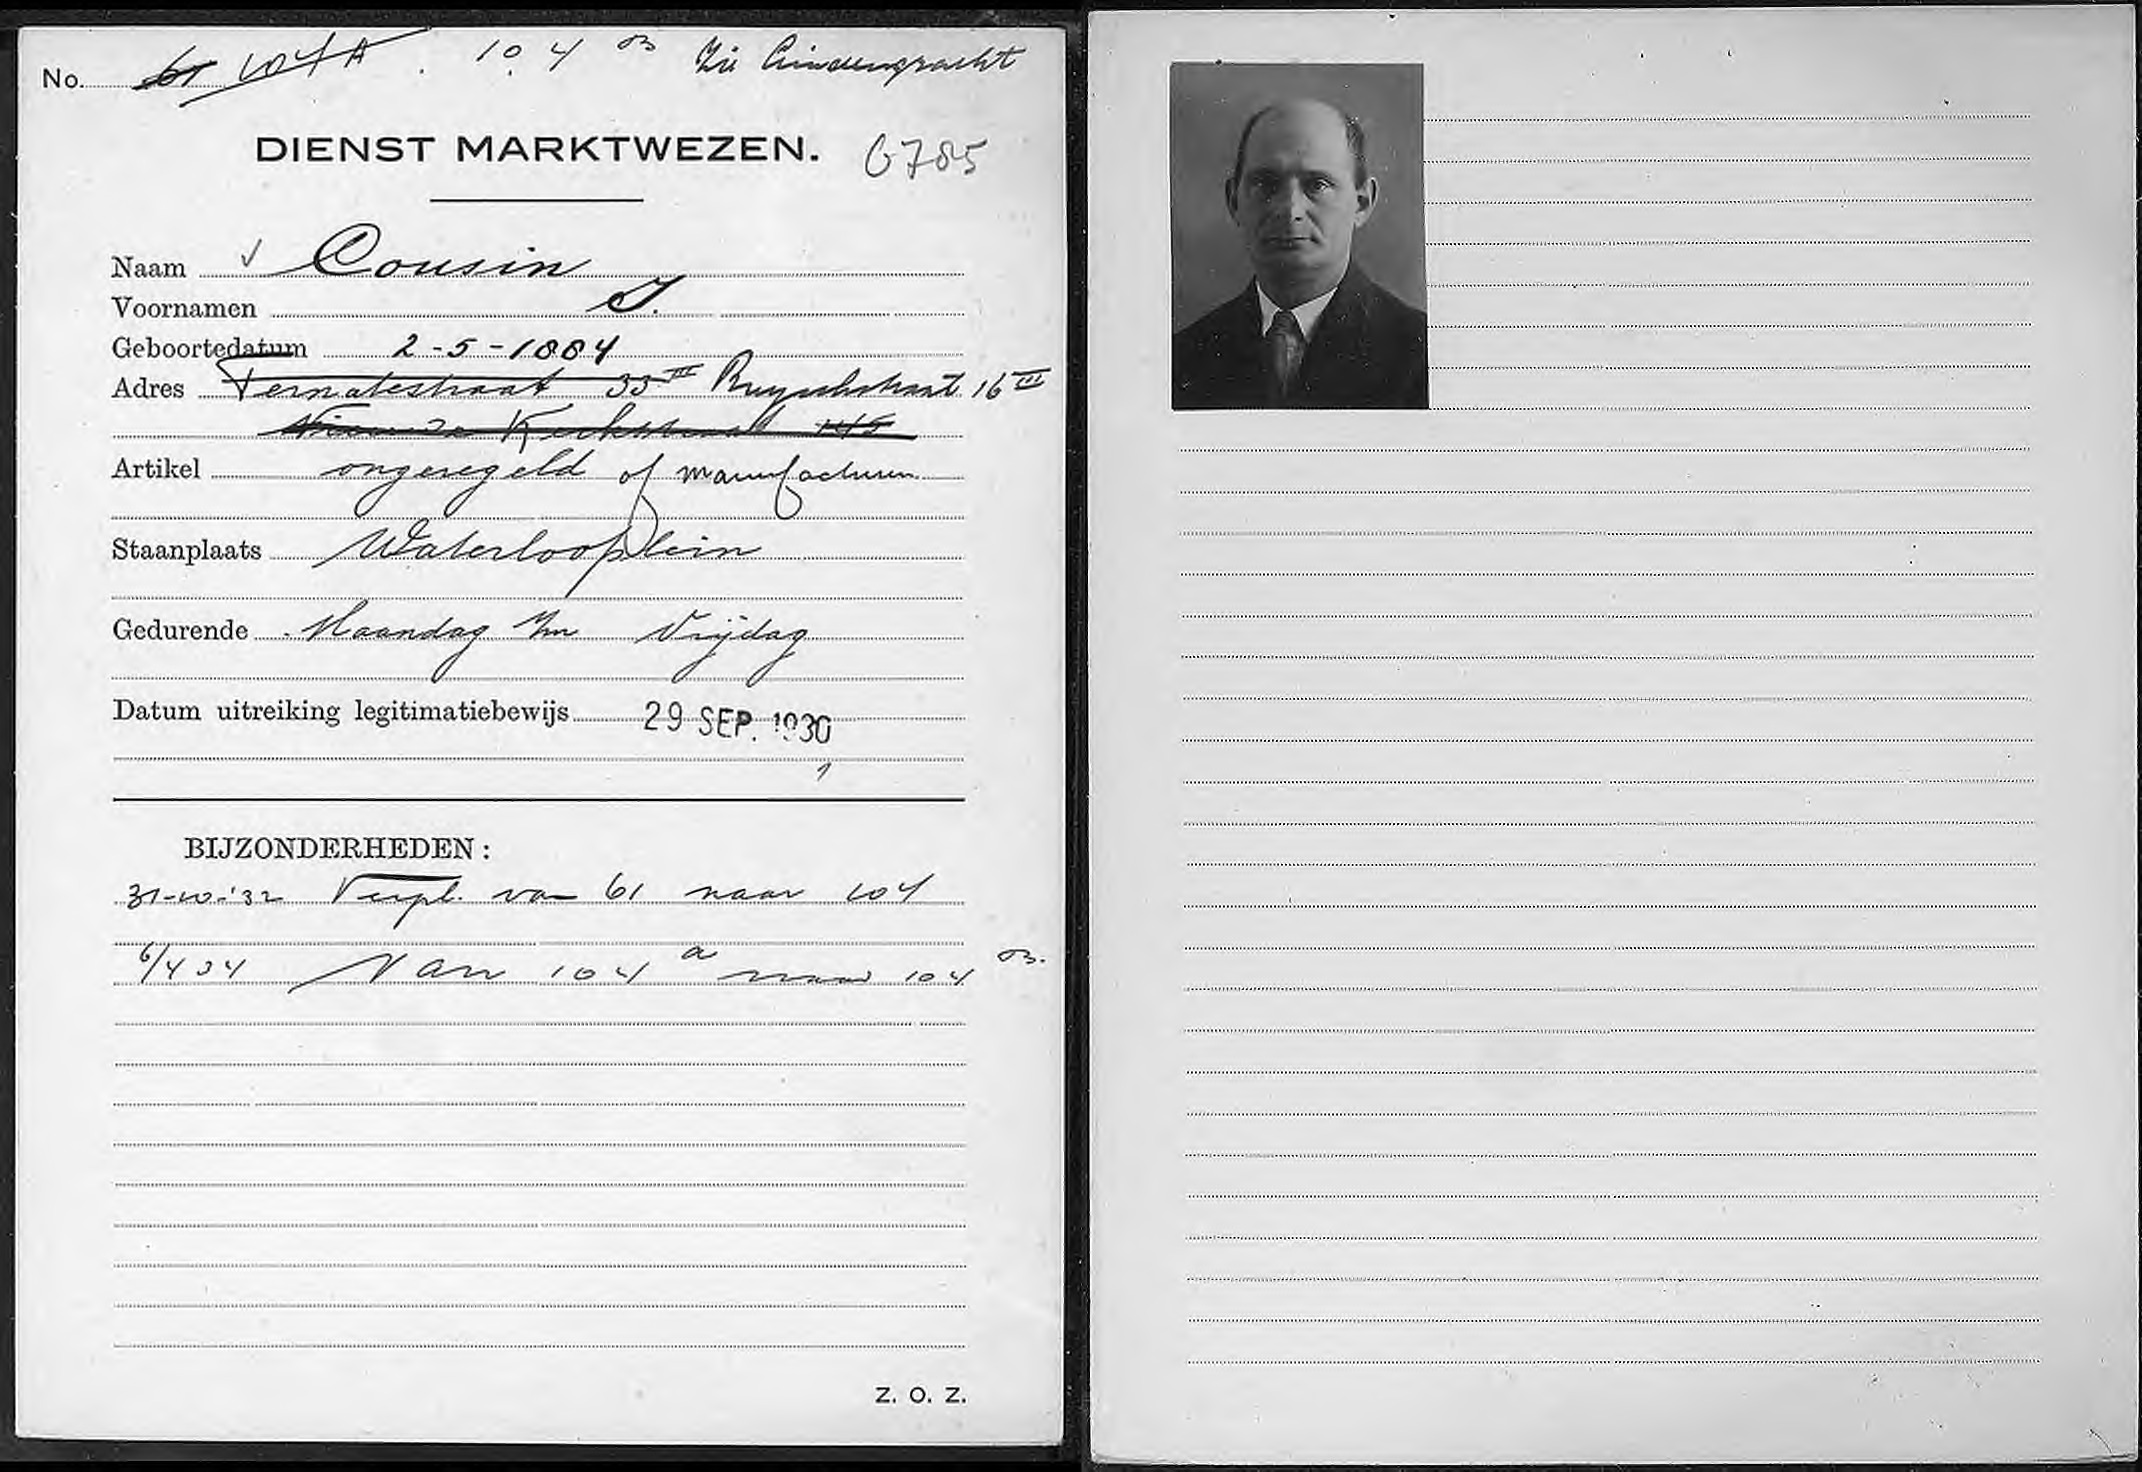 No. 61 104A 104 B Zie Lindengracht
DIENST MARKTWEZEN. 6785
Naam Cousin
Voornamen I.
Geboortedatum 2-5-1884
Adres Ternatestraat 33 III Ruyschstraat 16 III
Nieuwe Kerkstraat 145
Artikel ongeregeld of manufacturen
Staanplaats Waterlooplein
Gedurende Maandag t/m Vrijdag
Datum uitreiking legitimatiebewijs 29 SEP. 1930
BIJZONDERHEDEN:
31-10-'32 Verpl. van 61 naar 104
6/4 34 Van 104 a naar 104 B.
Z. O. Z.